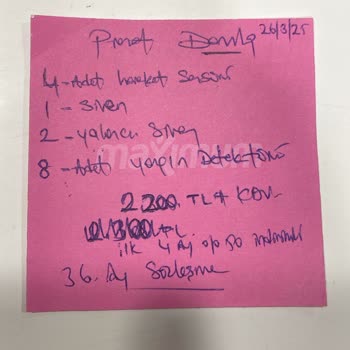 26/3/25
4 - Adet hareket Sensörü
1 - Siren
2 - yalancı Siren
8 - Adet yangın Dedektörü
maximum
2.200. TL + KDV
ilk 4 Ay % 50 indirimli
36. Ay Sözleşme